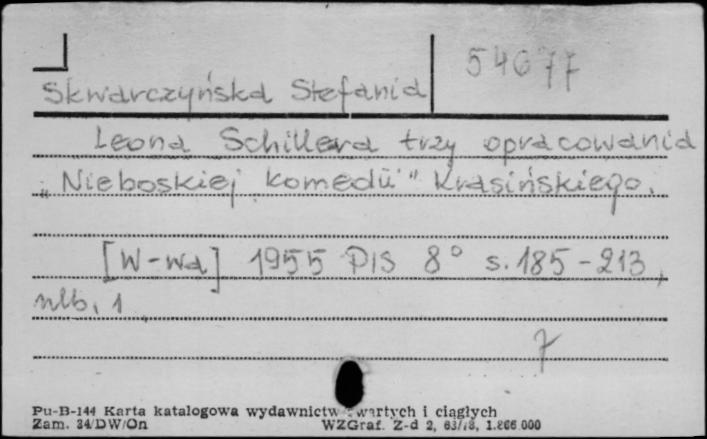 54677
Skwarczyńska Stefania
Leona Schillera trzy opracowania
„Nieboskiej komedii" Krasińskiego.
[W-wa] 1955 PIS 8° s. 185-213,
nlb. 1
7
Pu-B-144 Karta katalogowa wydawnictw zwartych i ciągłych
Zam. 34/DW/On WZGraf. Z-d 2, 63/78, 1.866.000